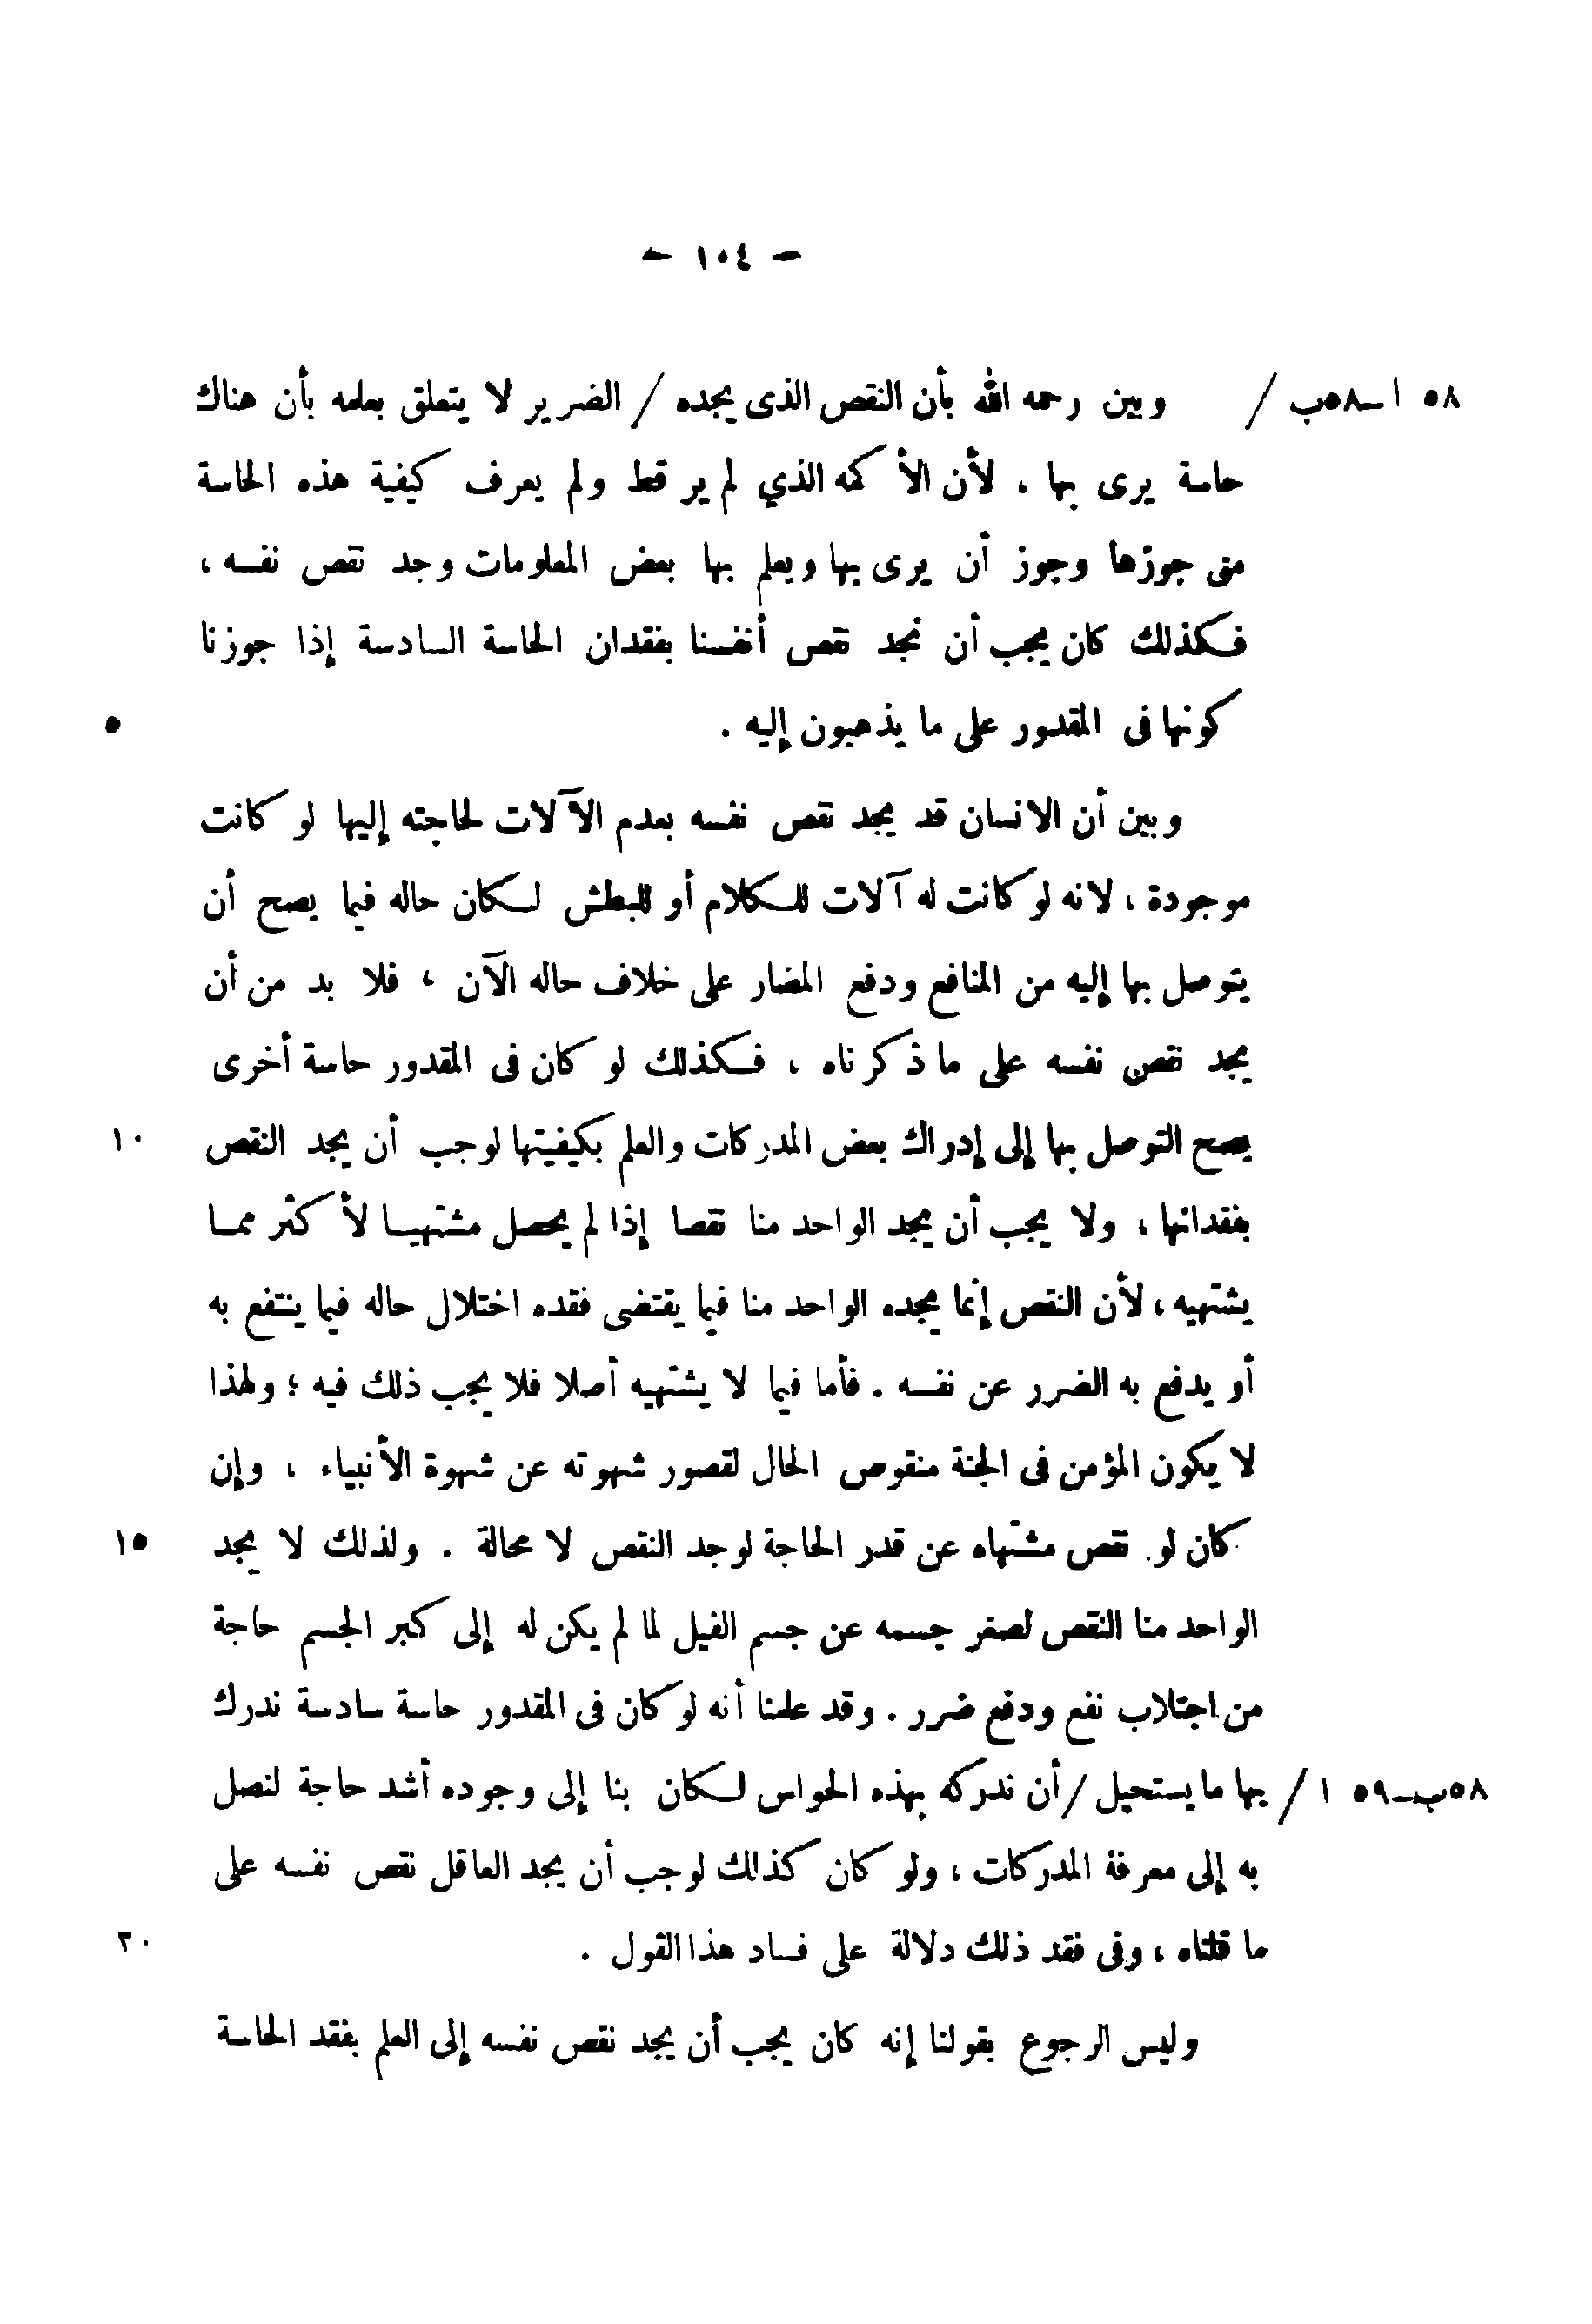 — ١٠٤ —
٥٨ ا—٥٨ب / وبين رحمه الله بأن النقص الذى يجده / الضرير لا يتعلق بعلمه بأن هناك
حاسة يرى بها ، لأن الأكمه الذي لم ير قط ولم يعرف كيفية هذه الحاسة
متى جوزها وجوز أن يرى بها ويعلم بها بعض المعلومات وجد نقص نفسه ،
فكذلك كان يجب أن نجد نقص أنفسنا بفقدان الحاسة السادسة إذا جوزنا
كونها فى المقدور على ما يذهبون إليه . ٥
وبين أن الانسان قد يجد نقص نفسه بعدم الآلات لحاجته إليها لو كانت
موجودة ، لانه لو كانت له آلات للكلام أو للبطش لكان حاله فيما يصح أن
يتوصل بها إليه من المنافع ودفع المضار على خلاف حاله الآن ، فلا بد من أن
يجد نقص نفسه على ما ذكرناه ، فكذلك لو كان فى المقدور حاسة أخرى
يصح التوصل بها إلى إدراك بعض المدركات والعلم بكيفيتها لوجب أن يجد النقص ١٠
بفقدانها ، ولا يجب أن يجد الواحد منا نقصا إذا لم يحصل مشتهيا لأكثر مما
يشتهيه ، لأن النقص إنما يجده الواحد منا فيما يقتضى فقده اختلال حاله فيما ينتفع به
أو يدفع به الضرر عن نفسه . فأما فيما لا يشتهيه أصلا فلا يجب ذلك فيه ؛ ولهذا
لا يكون المؤمن فى الجنة منقوص الحال لقصور شهوته عن شهوة الأنبياء ، وإن
كان لو نقص مشتهاه عن قدر الحاجة لوجد النقص لا محالة . ولذلك لا يجد ١٥
الواحد منا النقص لصغر جسمه عن جسم الفيل لما لم يكن له إلى كبر الجسم حاجة
من اجتلاب نفع ودفع ضرر . وقد علمنا أنه لو كان فى المقدور حاسة سادسة ندرك
٥٨ب—٥٩ ا / بها ما يستحيل / أن ندركه بهذه الحواس لكان بنا إلى وجوده أشد حاجة لنصل
به إلى معرفة المدركات ، ولو كان كذلك لوجب أن يجد العاقل نقص نفسه على
ما قلناه ، وفى فقد ذلك دلالة على فساد هذا القول . ٢٠
وليس الرجوع بقولنا إنه كان يجب أن يجد نقص نفسه إلى العلم بفقد الحاسة